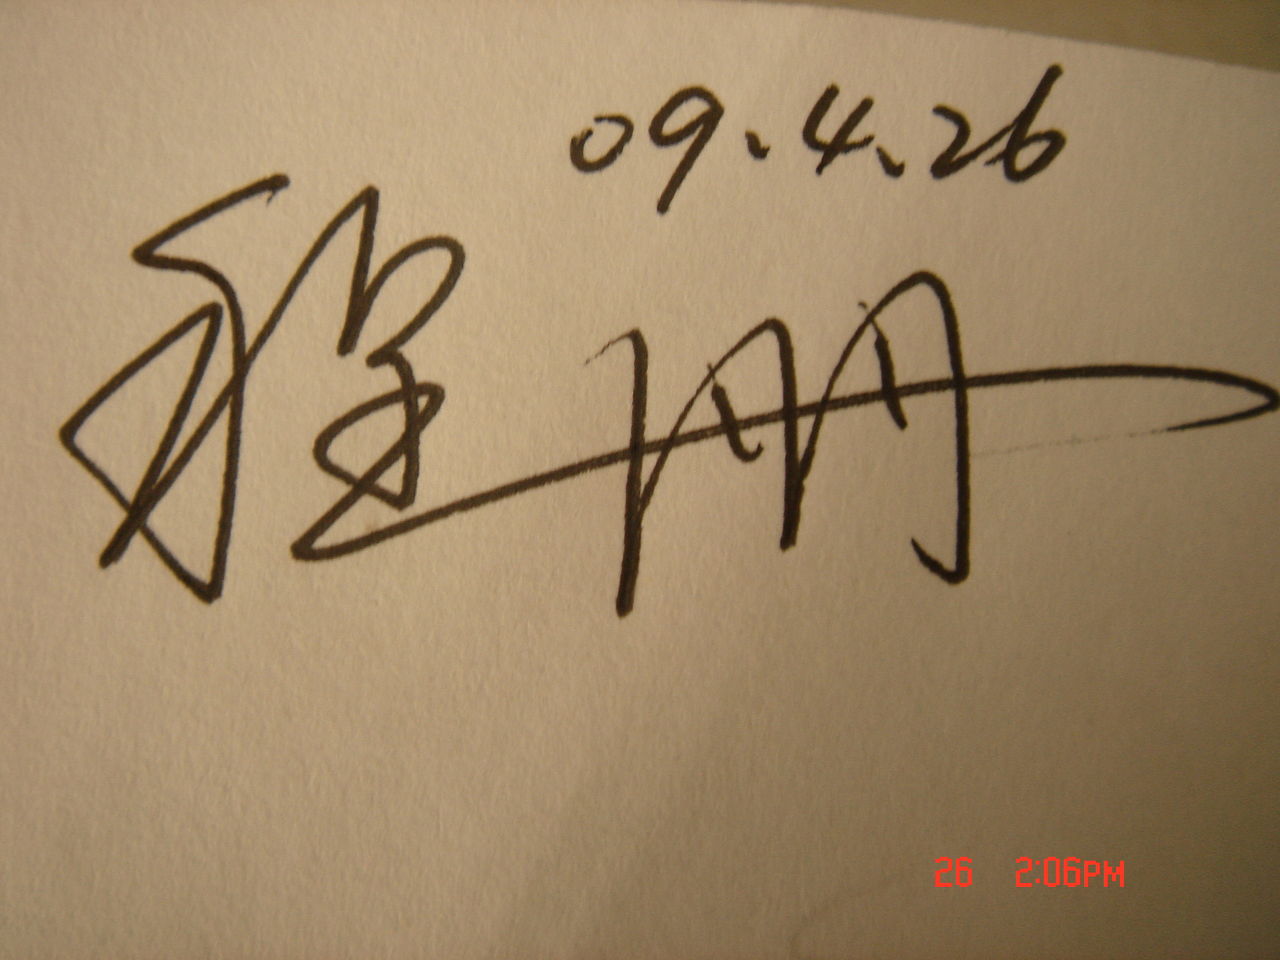 09.4.26
程朋
26 2:06PM